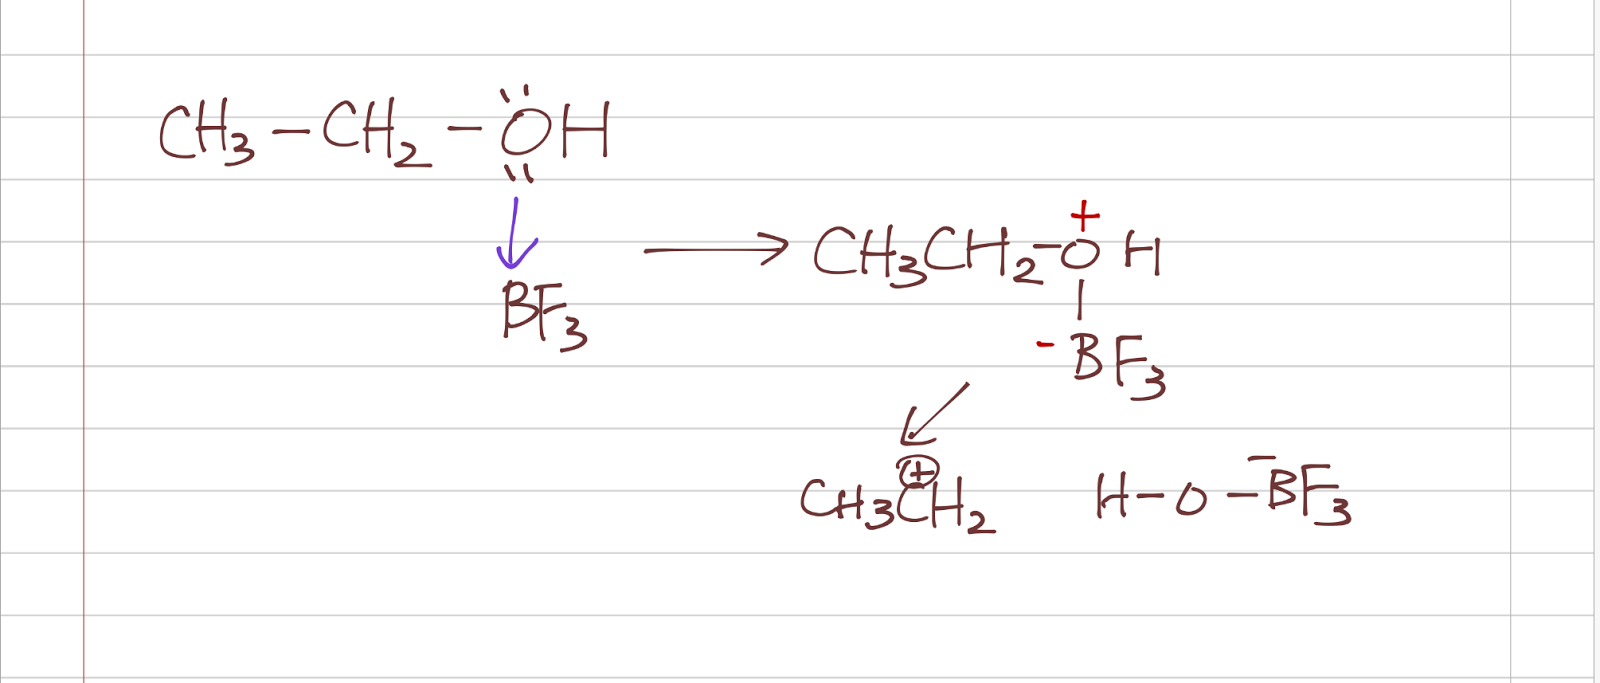 CH₃–CH₂–ÖH
BF₃
⟶ CH₃CH₂–O⁺H
⁻BF₃
CH₃C⊕H₂ H–O–⁻BF₃